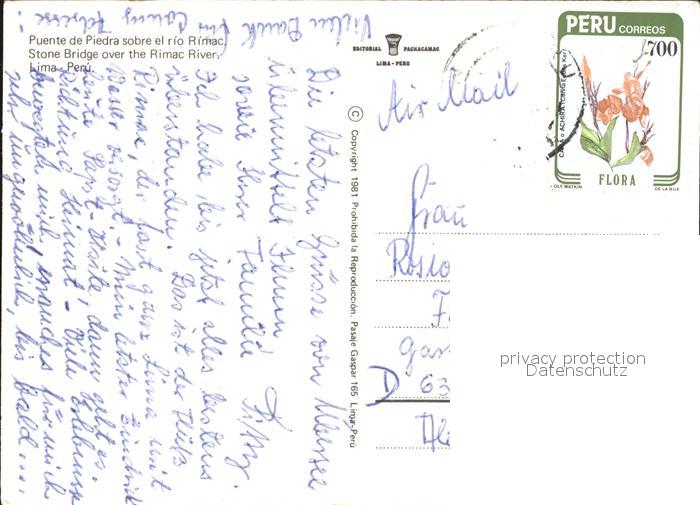 Puente de Piedra sobre el río Rímac,
Stone Bridge over the Rimac River,
Lima - Perú.
EDITORIAL PACHACAMAC
LIMA - PERU
© Copyright 1981 Prohibida la Reproducción. Pasaje Gaspar 165 Lima-Perú
PERU CORREOS
700
FLORA
OLY WATKIN
DE LA RUE
Air Mail
Frau
Rosw
F
D 63
privacy protection
Datenschutz
Vielen Dank für
Die letzten Grüsse von
übermittelt Ihnen
sowie Ihrer Familie
Ich habe bis jetzt alles bestens
überstanden. Das ist der Fluß
Rimac der fast ganz Lima mit
Wasser versorgt - Mein letzter Eindruck
heute, dann geht es
Richtung Heimat - Viele Erlebnisse
und manches für mich
sehr ungewöhnlich, bis bald...